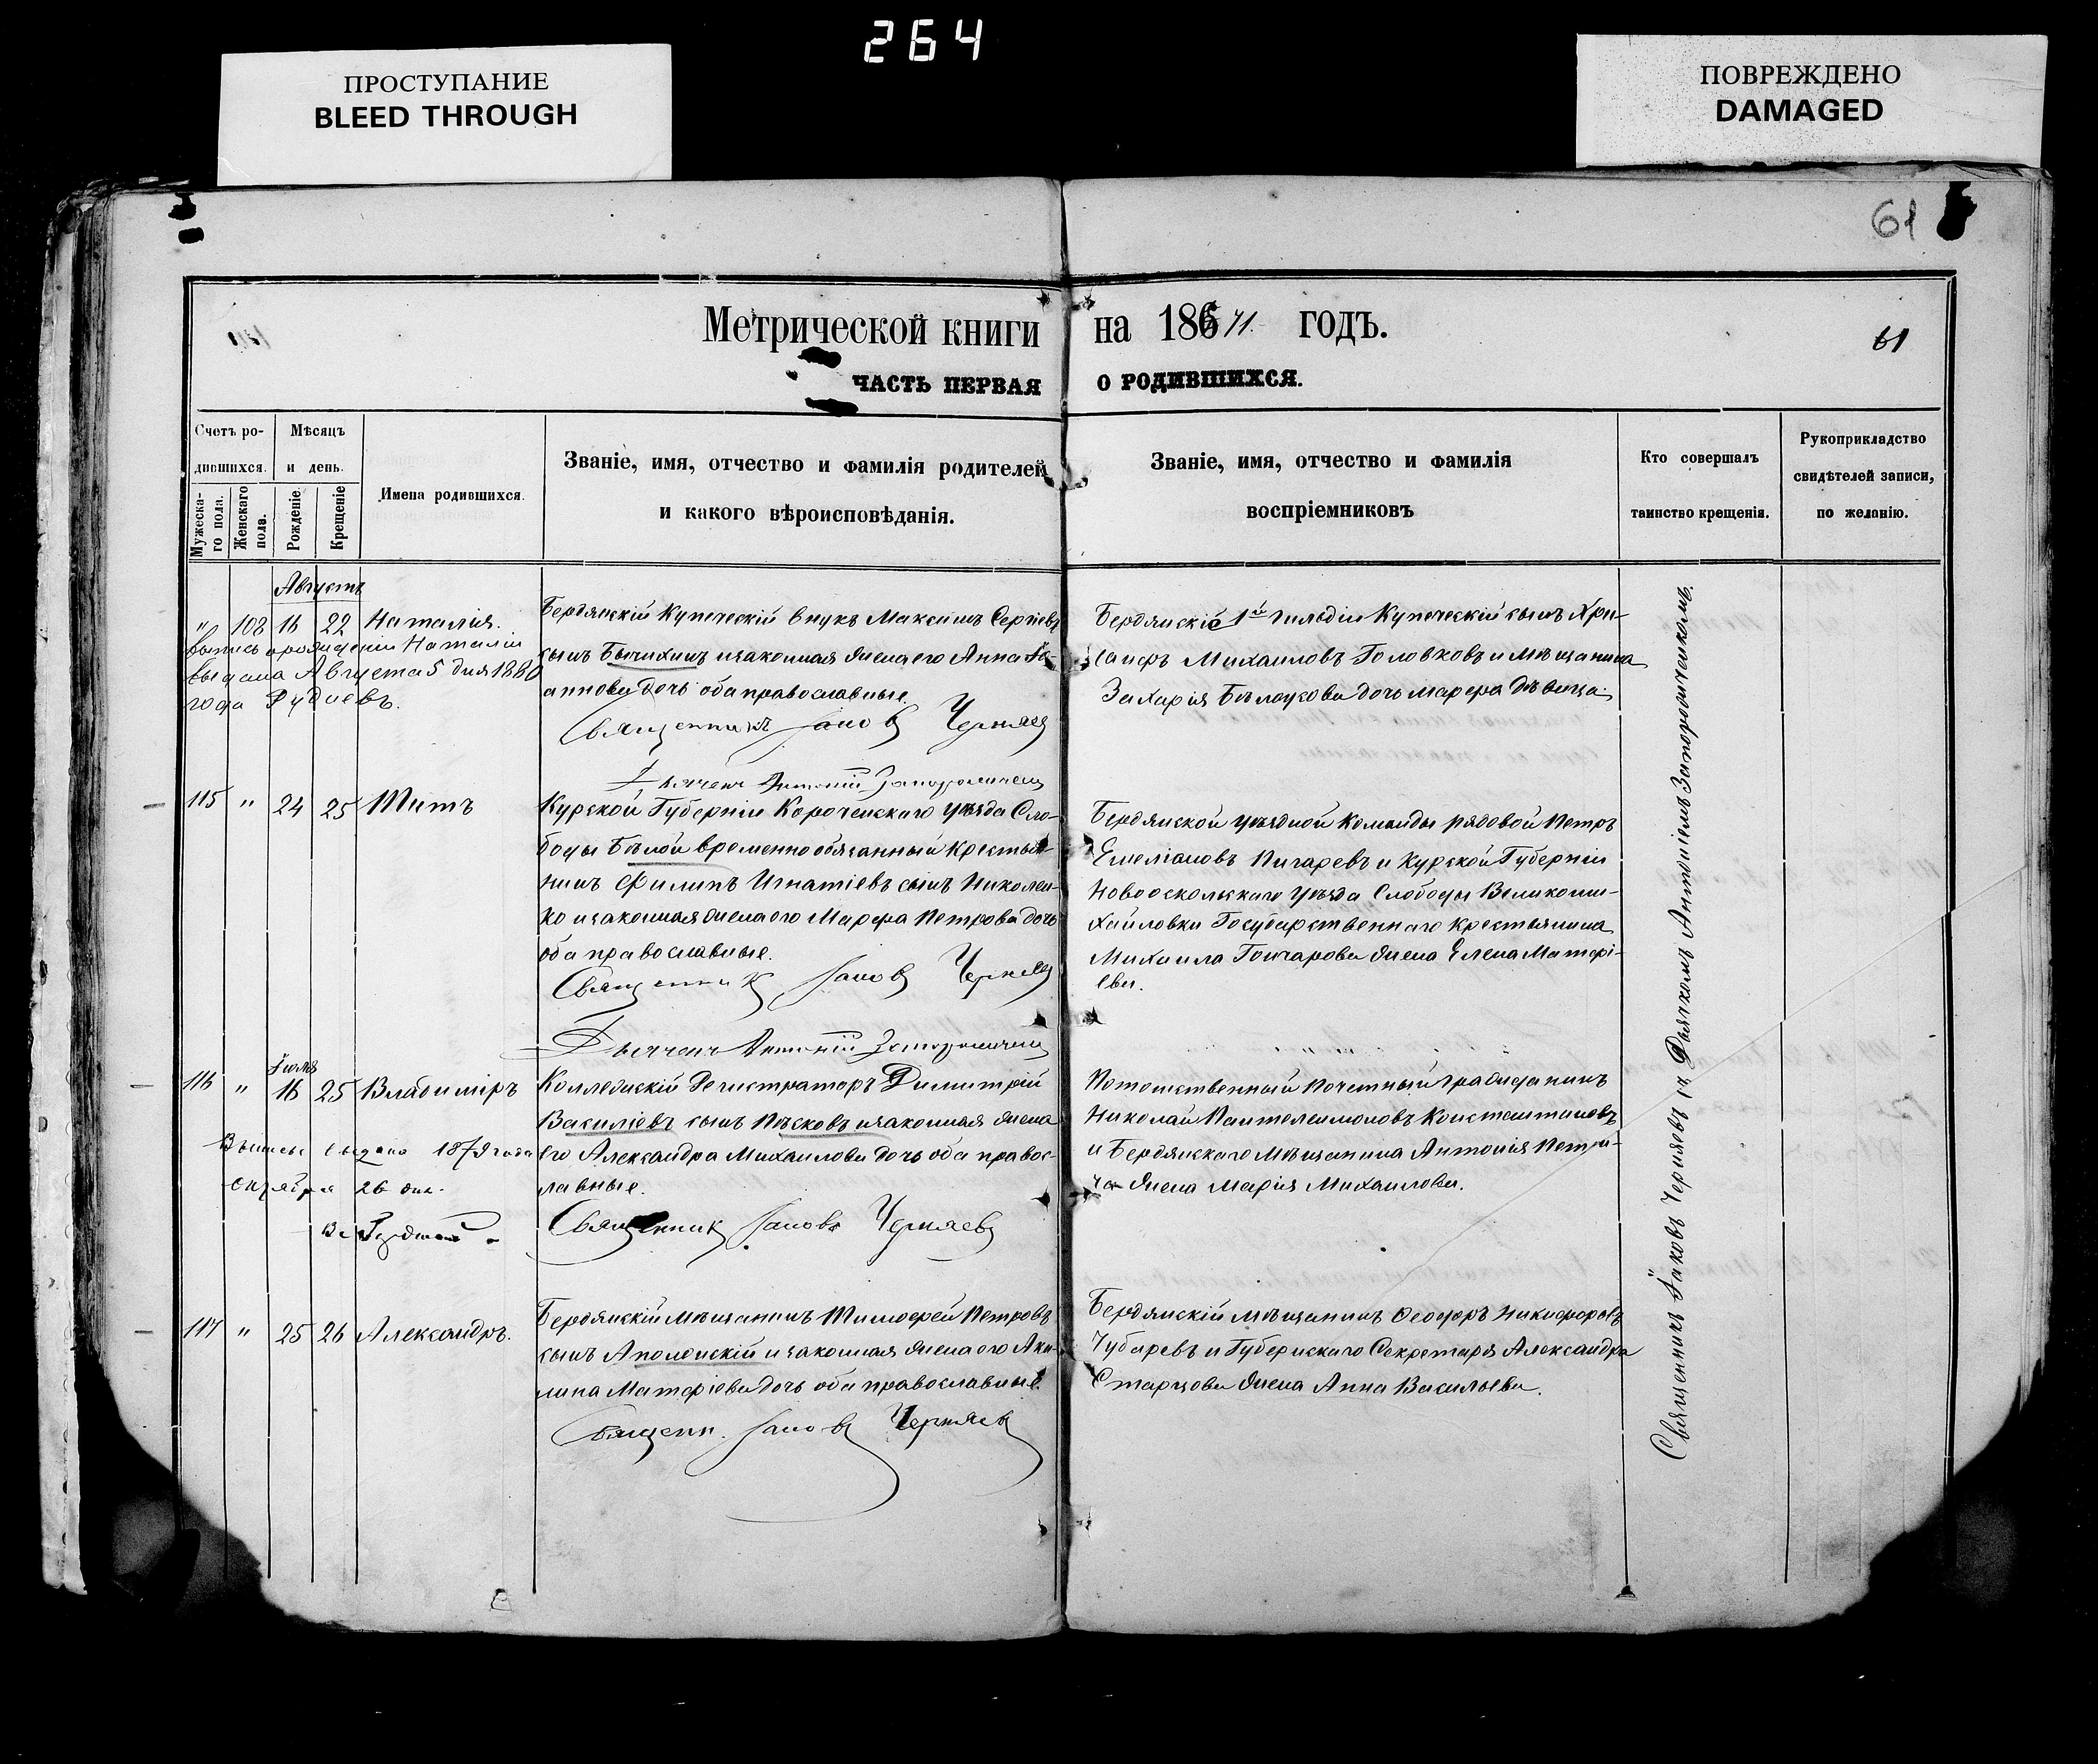 264
ПРОСТУПАНИЕ
BLEED THROUGH
ПОВРЕЖДЕНО
DAMAGED
61
Метрической книги на 18671. годъ.
61
ЧАСТЬ ПЕРВАЯ О РОДИВШИХСЯ.
Счетъ родившихся.
Мѣсяцъ и день.
Мужескаго пола.
Женскаго пола.
Рожденіе
Крещеніе
Имена родившихся.
Званіе, имя, отчество и фамилія родителей
и какого вѣроисповѣданія.
Званіе, имя, отчество и фамилія
воспріемниковъ
Кто совершалъ
таинство крещенія.
Рукоприкладство
свидѣтелей записи,
по желанію.
Августъ
" 108 16 22 Наталія.
выпись о рожденіи Наталіи
выдана Августа 5 дня 1880
года
Бердянскій Купеческій внукъ Максимъ Сергіевъ
сынъ и законная жена его Анна
дочь оба православные.
Священникъ Іаковъ Черняевъ
Дьячекъ Антоній Запорожченко
Бердянскій 1й гильдіи Купеческій сынъ Хри-
Михаиловъ Головковъ и Мѣщанина
Захарія Бѣлоусова дочь Марфа дѣвица.
115 " 24 25 Титъ
Курской Губерніи Корочанскаго уѣзда Сло-
боды Бѣлой временно обязанный крестья-
нинъ Филипъ Игнатіевъ сынъ Николен-
ко и законная жена его Марфа Петрова дочь
оба православные.
Священникъ Іаковъ Черняевъ
Дьячекъ Антоній Запорожченко
Бердянской уѣздной команды рядовой Петръ
Емеліановъ Пичаревъ и Курской Губерніи
Новооскольскаго уѣзда Слободы Великоми-
хайловки Государственнаго крестьянина
Михаила Гончарова жена Елена Матфі-
ева.
Іюля
116 " 16 25 Владиміръ
Выпись выдана 1879 года
Октября 26 дня.
Коллежскій Регистраторъ Димитрій
Василіевъ сынъ Пѣсковъ и законная жена
его Александра Михаилова дочь оба правос-
лавные.
Священникъ Іаковъ Черняевъ
Потомственный почетный гражданинъ
Николай Пантелеимоновъ Константиновъ
и Бердянскаго Мѣщанина Антонія
жена Марія Михаилова.
117 " 25 26 Александръ.
Бердянскій мѣщанинъ Тимофей Петровъ
сынъ Аполонскій и законная жена его Аки-
лина Матфіева дочь оба православные.
Священн. Іаковъ Черняевъ
Бердянскій мѣщанинъ Феодоръ Никифоровъ
Чубаревъ и Губернскаго Секретаря Александра
Старцова жена Анна Васильева.
Священникъ Іаковъ Черняевъ съ Дьячкомъ Антоніемъ Запорожченкомъ.